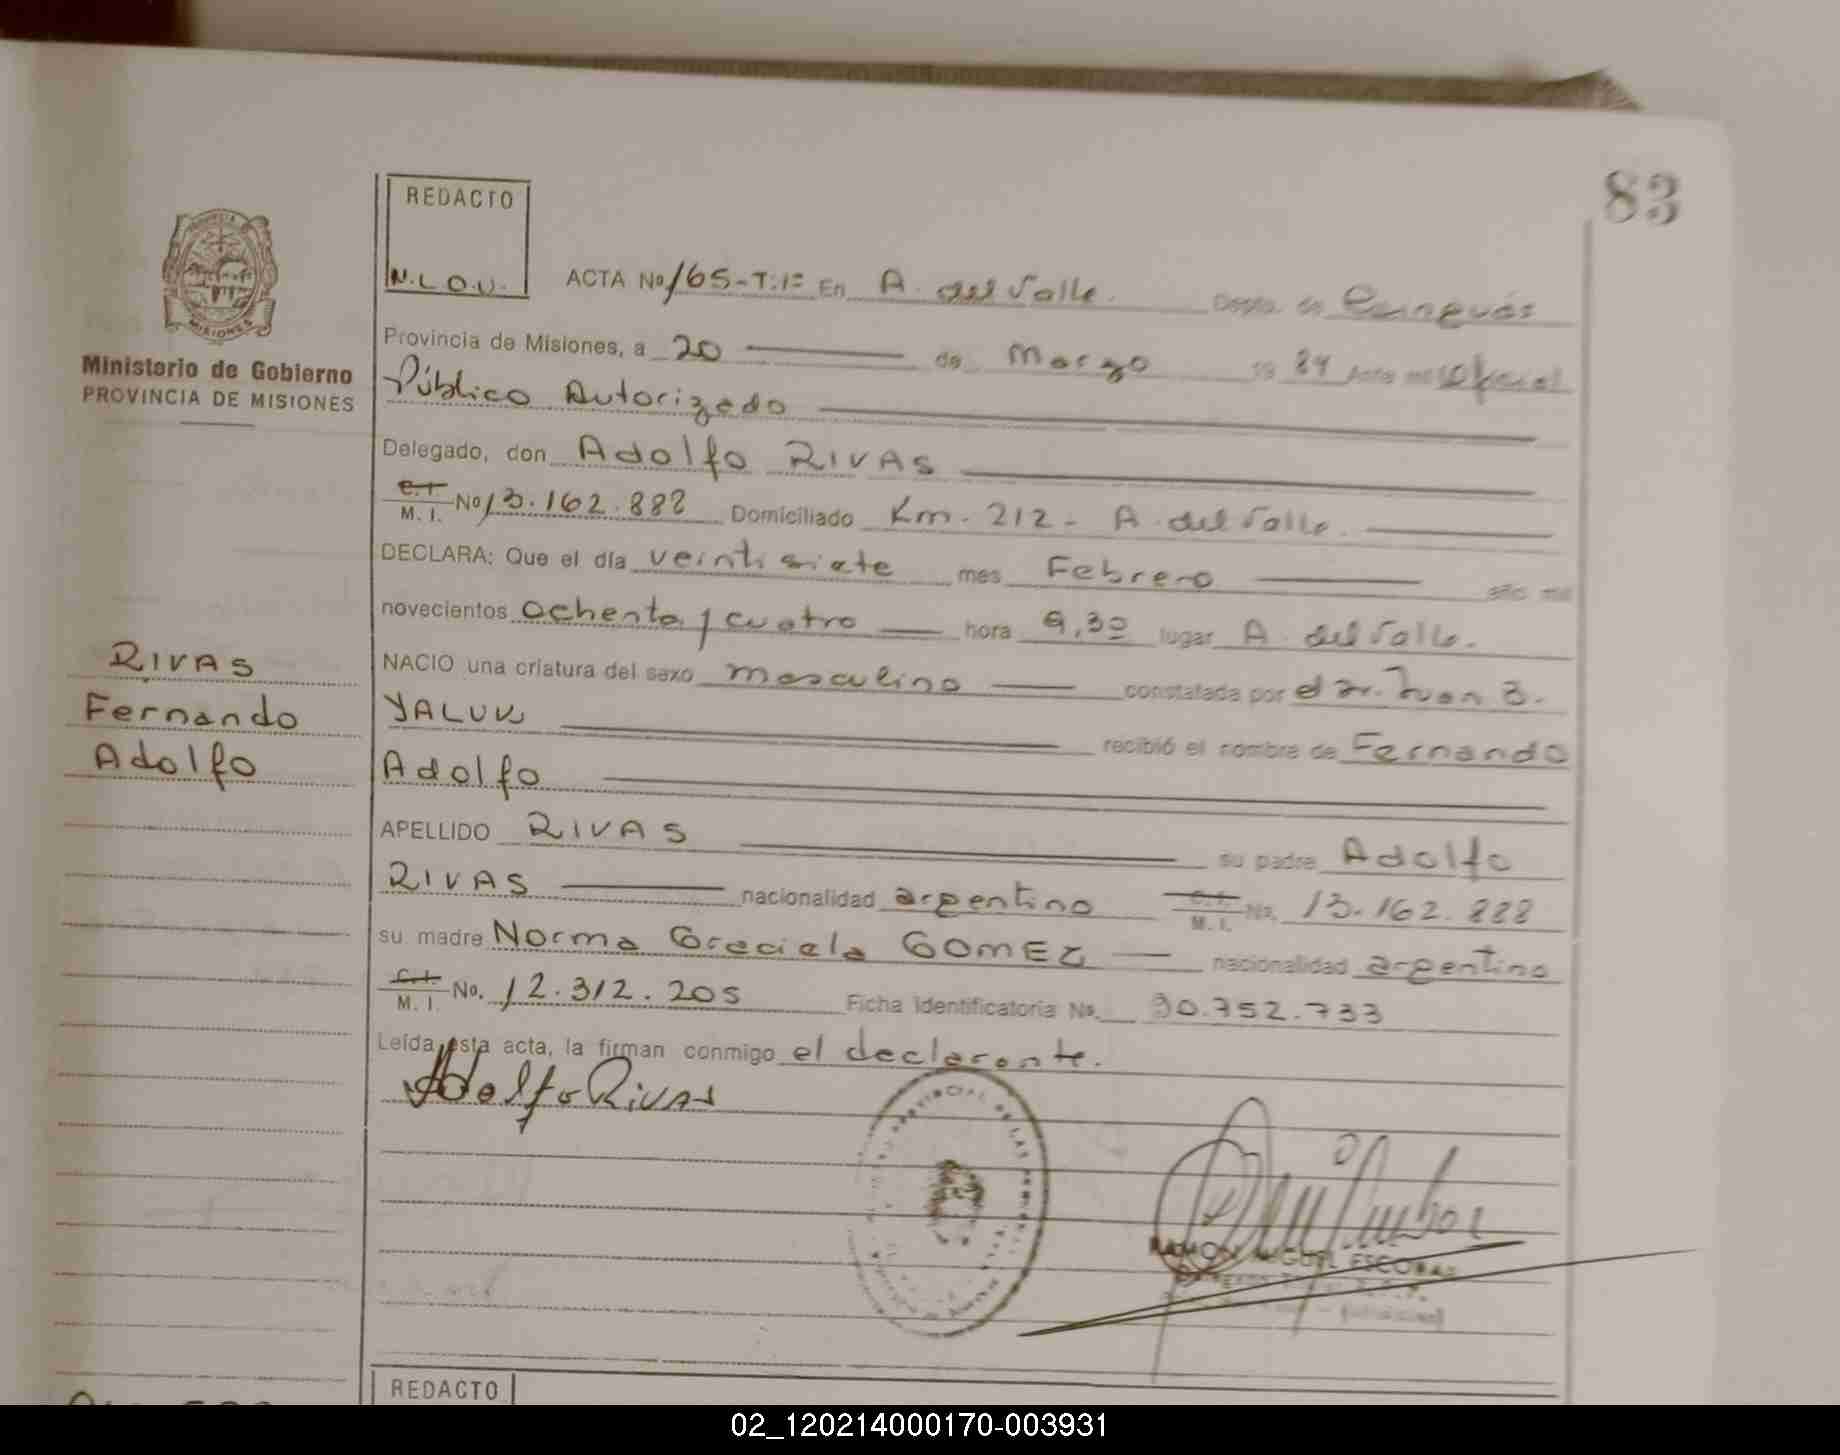 83
REDACTO
N.L.O.V.
ACTA No 165-T:1º En A. del Valle. Depto. de Cainguás
Ministerio de Gobierno
PROVINCIA DE MISIONES
Provincia de Misiones, a 20 de Marzo 19 84 Ante mi Oficial
Público Autorizado
Delegado, don Adolfo RIVAS
C.I. M. I. No 13.162.888 Domiciliado Km. 212 - A. del Valle.
DECLARA: Que el día veintisiete mes Febrero año mil
novecientos ochenta y cuatro hora 9,30 lugar A. del Valle.
RIVAS
Fernando
Adolfo
NACIO una criatura del sexo masculino constatada por el Dr. Juan B.
YALUK
recibió el nombre de Fernando
Adolfo
APELLIDO RIVAS su padre Adolfo
RIVAS nacionalidad argentino C.I. M. I. No. 13.162.888
su madre Norma Graciela GOMEZ nacionalidad argentina
C.I. M. I. No. 12.312.205 Ficha Identificatoria No. 30.752.733
Leída esta acta, la firman conmigo el declarante.
Adolfo RIVAS
RAMON MIGUEL ESCOBAR
REDACTO
02_120214000170-003931